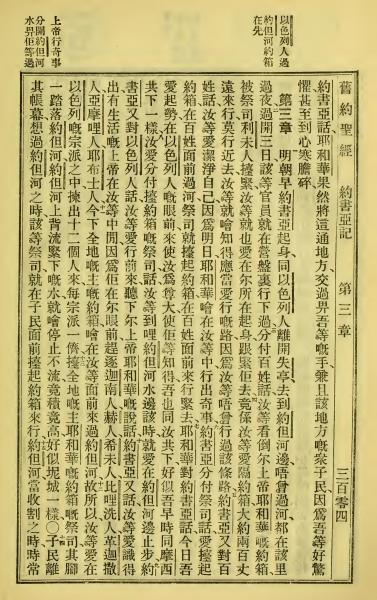 以色列人過
約但河約箱
在先
上帝行奇事
分開約但河
水畀佢等過
舊約聖經 約書亞記 第三章 三百零四
約書亞話耶和華果然將這通地方交過畀吾等嘅手兼且該地方嘅衆子民因爲吾等好驚
懼甚至到心寒膽碎
第三章 明朝早約書亞起身同以色列人離開失亭去到約但河邊唔曾過河都在該里
過夜過開三日該等官員就在營盤裏行下過分付百姓話汝等看倒尔上帝耶和華嘅約箱
被祭司利未人擡緊汝等就也愛在尔所在起身跟緊佢去竟係汝等愛隔約箱大約兩百丈
遠來行莫行近去汝等就噲知得應當愛行嘅路因爲汝等唔曾行過該條路約書亞又對百
姓話汝等愛潔淨自己因爲明日耶和華噲在汝等中行出奇事約書亞分付祭司話愛擡起
約箱在百姓面前過河祭司就擡起約箱在百姓面前來行緊去耶和華對約書亞話今日吾
愛起勢在以色列人嘅眼前來使汝爲尊大使佢等知得吾也同汝共下好似吾早時同摩西
共下一樣汝愛分付擡約箱嘅祭司話汝等到哩約但河水邊該時就愛在約但河邊止步約
書亞又對以色列人話汝等愛行前來聽下尔上帝耶和華嘅說話約書亞又話汝等愛識得
出有生活嘅上帝在汝等中間因爲佢在尔眼前趕逐迦南人赫人希未人比哩洗人革迦撒
人亞摩哩人耶布士人今下全地嘅主嘅約箱噲在汝等面前來過約但河故所以汝等愛在
以色列嘅宗派之中揀出十二個人來每宗派一儕擡全地嘅主耶和華嘅約箱嘅祭司其脚
一踏落約但河約但河上背流緊下嘅水就噲停止不流竟積竟高好似坭城一樣〇子民離
其帳幕想過約但河之時該等祭司就在子民面前擡起約箱來行約但河當收割之時時常